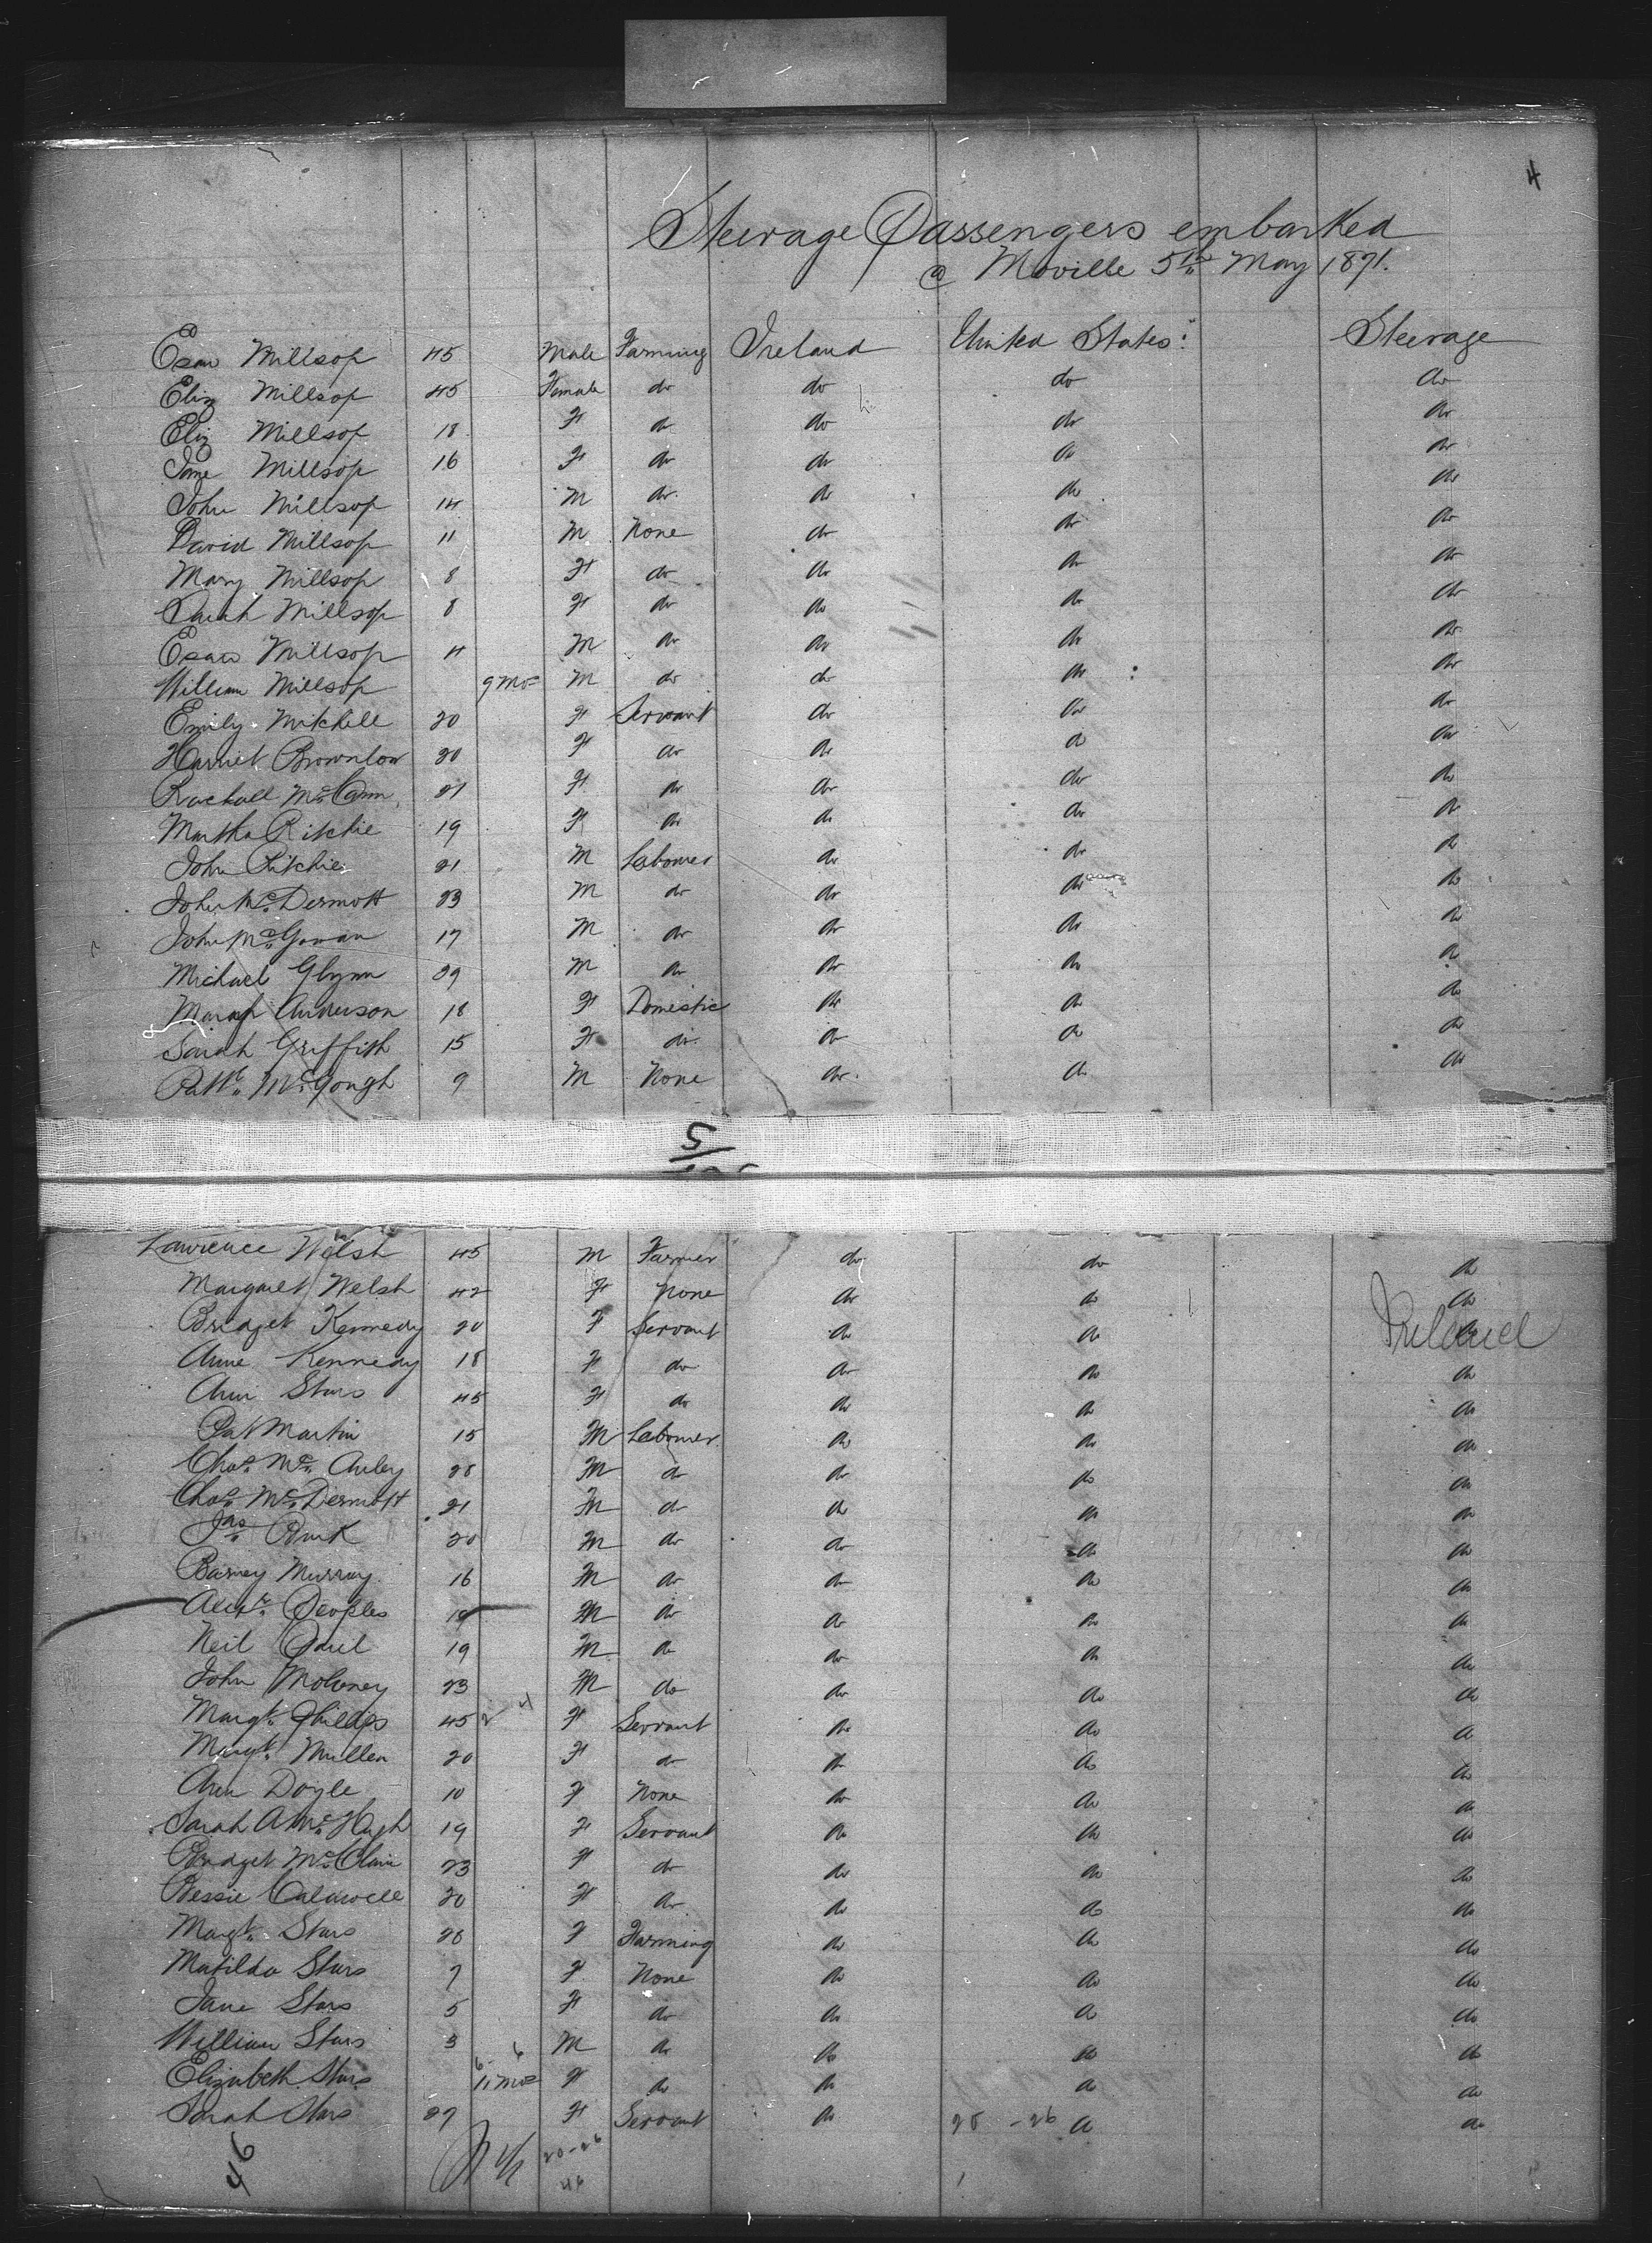 4
Steerage Passengers embarked
@ Moville 5th May 1871.
Esau Millsop 45 Male Farming Ireland United States Steerage
Eliz Millsop 45 Female do do do do
Eliz Millsop 18 F do do do do
Jane Millsop 16 F do do do do
John Millsop 14 M do do do do
David Millsop 11 M None do do do
Mary Millsop 8 F do do do do
Sarah Millsop 8 F do do do do
Esau Millsop 4 M do do do do
William Millsop 9 Mos M do do do do
Emily Mitchell 20 F Servant do do do
Harriet Brownlow 20 F do do do do
Rachall McCann 21 F do do do do
Martha Ritchie 19 F do do do do
John Ritchie 21 M Labourer do do do
John McDermott 23 M do do do do
John McGowan 17 M do do do do
Michael Glynn 29 M do do do do
Anderson 18 F Domestic do do do
Sarah Griffith 15 F do do do do
Patk McGough 9 M None do do do
5
Lawrence Welsh 45 M Farmer do do do
Margaret Welsh 42 F None do do do
Bridget Kennedy 20 F Servant do do do
Ireland
Anne Kennedy 18 F do do do do
Ann Stars 45 F do do do do
Pat Martin 15 M Labourer do do do
Chas McAuley 28 M do do do do
Chas McDermott 21 M do do do do
Jas 20 M do do do do
Barney Murray 16 M do do do do
Alexr Peoples 19 M do do do do
Neil 19 M do do do do
John Moloney 23 M do do do do
Margt 45 F Servant do do do
Margt Mullen 20 F do do do do
Ann Doyle 10 F None do do do
Sarah A McHugh 19 F Servant do do do
Bridget 23 F do do do do
Bessie Caldwell 20 F do do do do
Margt Stars 28 F Farming do do do
Matilda Stars 7 F None do do do
Jane Stars 5 F do do do do
William Stars 3 M do do do do
6 6
Elizabeth Stars 11 Mos F do do do do
Sarah Stars 27 F Servant do do do
20-26
46
46